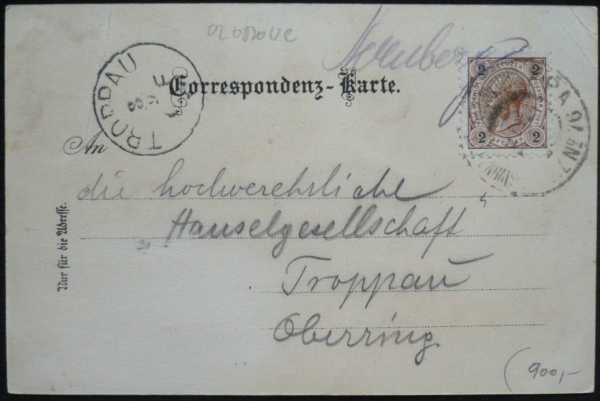 OLOMOUC
Sternberg
Correspondenz-Karte.
TROPPAU
2 2
2 2
An
die hochwerehrliche
Hanselgesellschaft
Troppau
Oberring
Nur für die Adresse.
(900,-